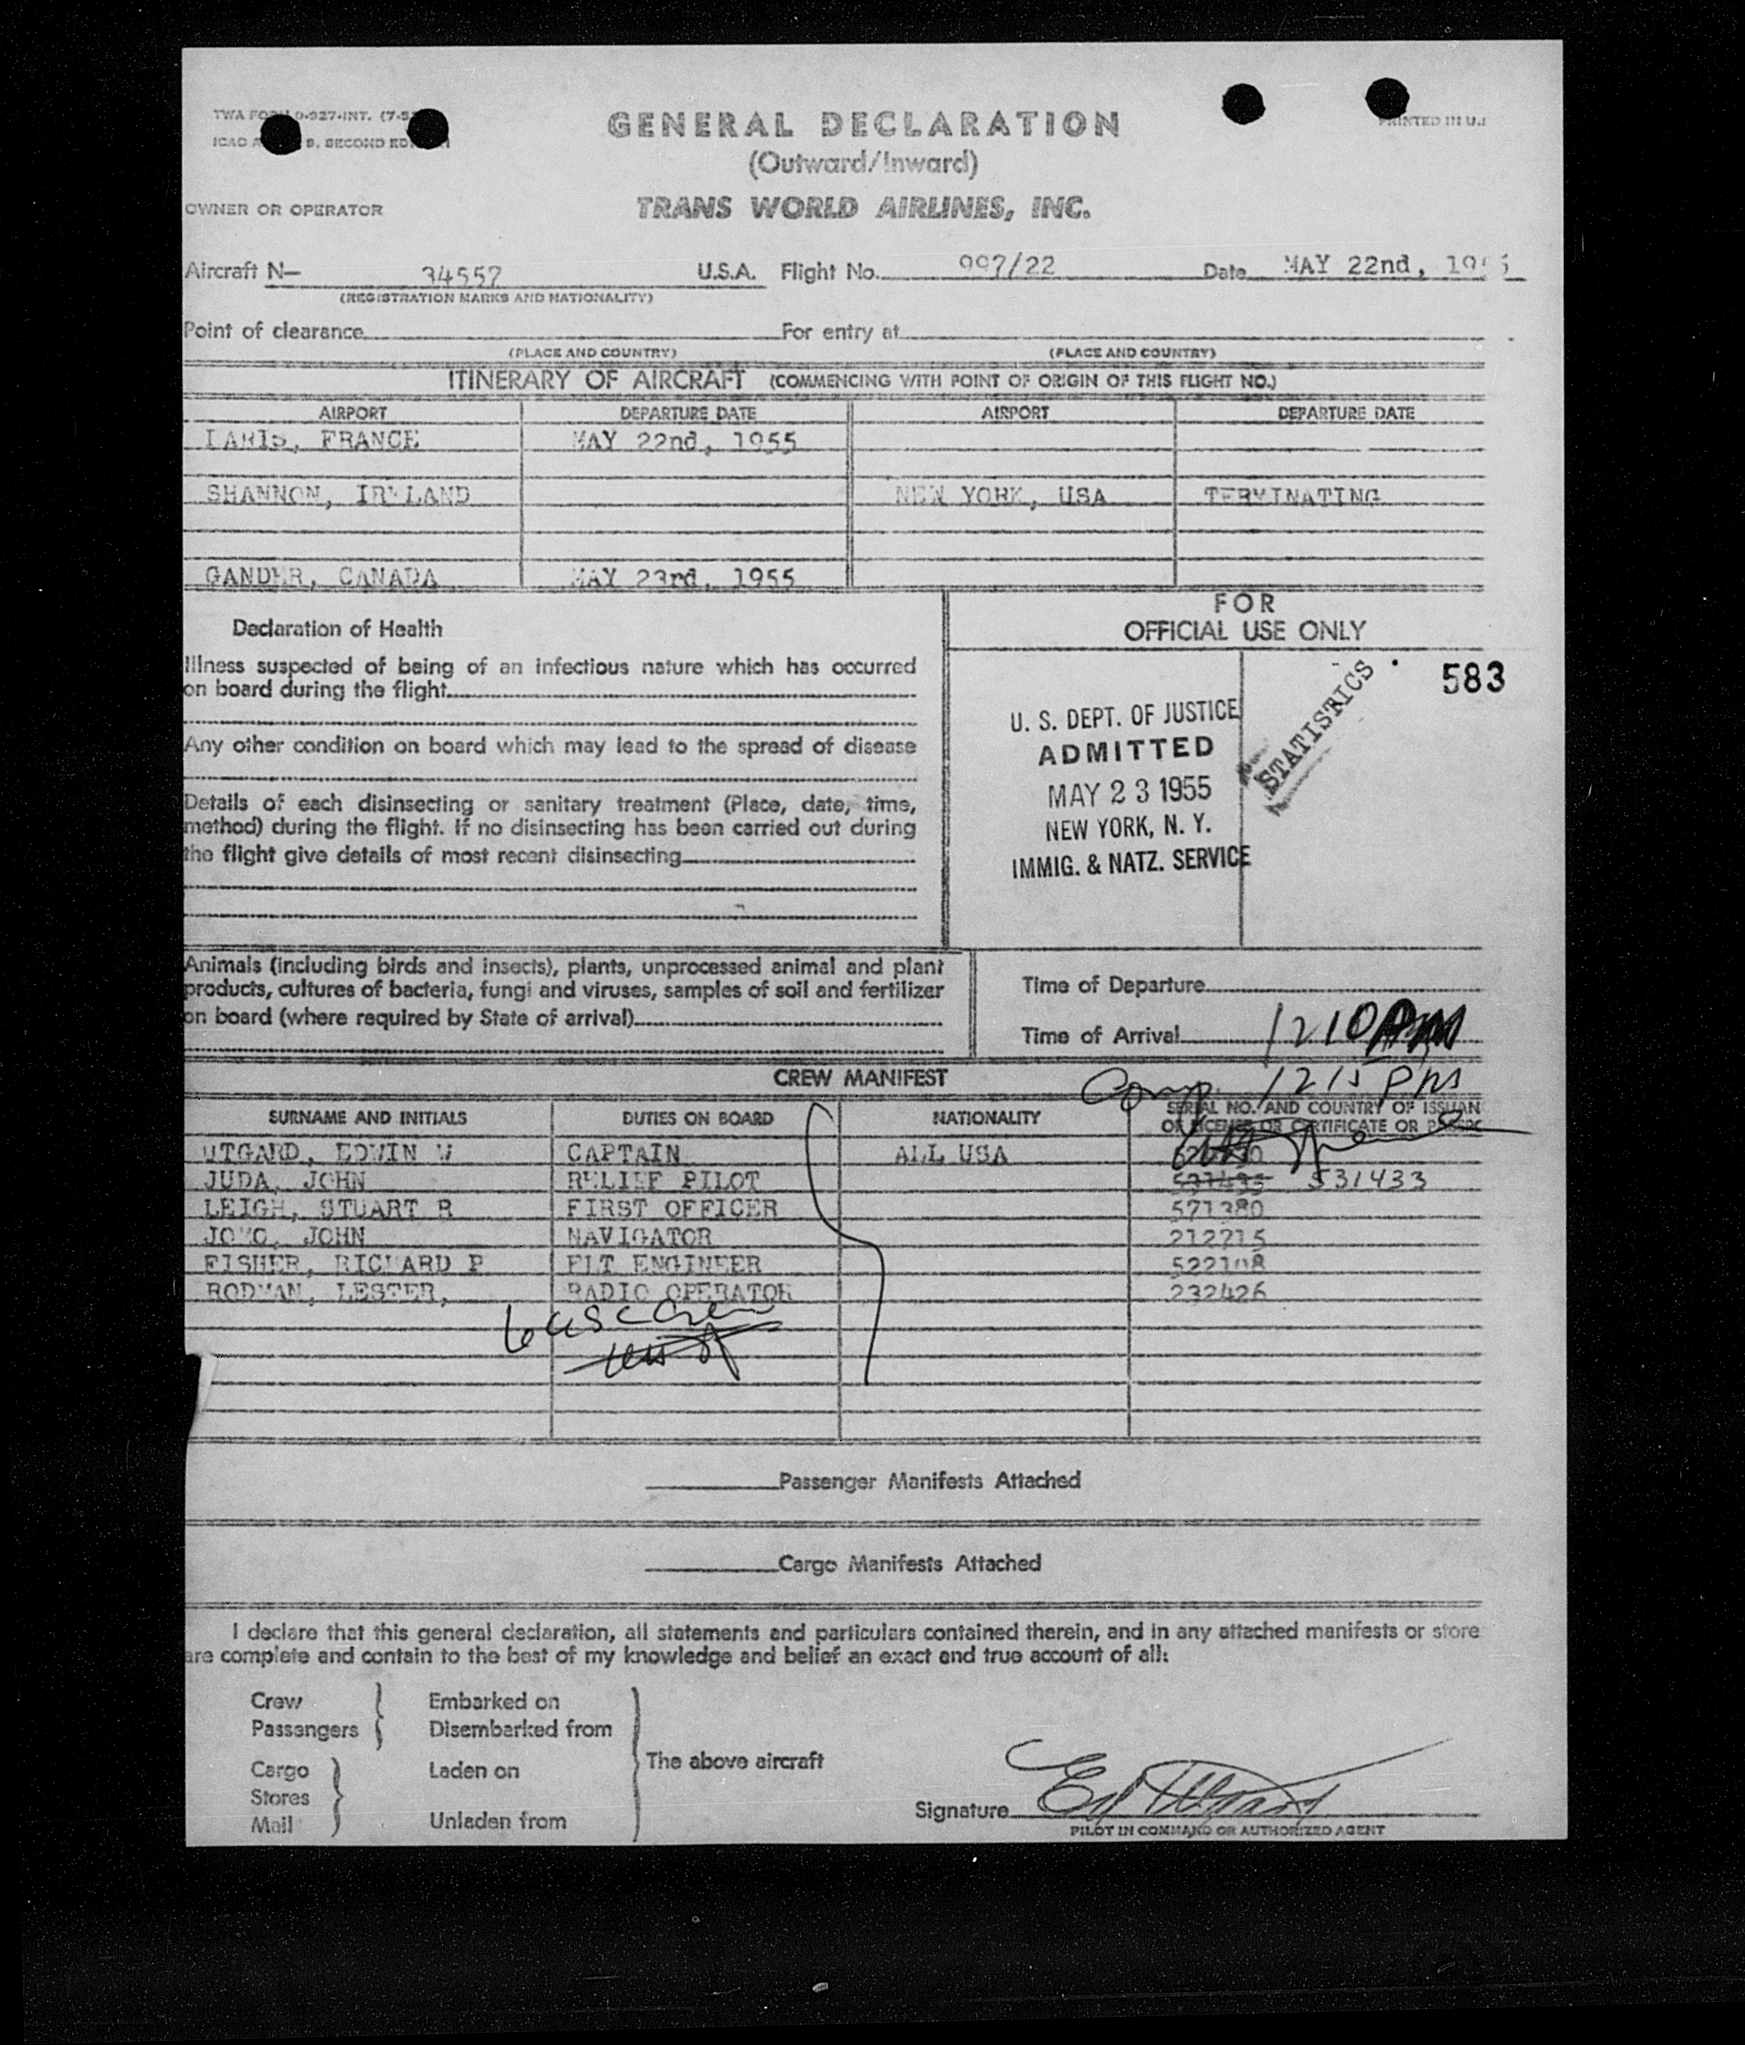 GENERAL DECLARATION
(Outward/Inward)
TRANS WORLD AIRLINES, INC.
TWA FORM 0-927-INT. (7-5
ICAO 9, SECOND
PRINTED IN U.
OWNER OR OPERATOR
Aircraft N— 34557 U.S.A. Flight No. 997/22 Date MAY 22nd, 195
(REGISTRATION MARKS AND NATIONALITY)
Point of clearance For entry at
(PLACE AND COUNTRY) (PLACE AND COUNTRY)
ITINERARY OF AIRCRAFT (COMMENCING WITH POINT OF ORIGIN OF THIS FLIGHT NO.)
AIRPORT DEPARTURE DATE AIRPORT DEPARTURE DATE
PARIS, FRANCE MAY 22nd, 1955
SHANNON, IRELAND NEW YORK, USA TERMINATING
GANDER, CANADA MAY 23rd, 1955
FOR
OFFICIAL USE ONLY
Declaration of Health
Illness suspected of being of an infectious nature which has occurred
on board during the flight
Any other condition on board which may lead to the spread of disease
Details of each disinsecting or sanitary treatment (Place, date, time,
method) during the flight. If no disinsecting has been carried out during
the flight give details of most recent disinsecting
583
STATISTRICS
U. S. DEPT. OF JUSTICE
ADMITTED
MAY 23 1955
NEW YORK, N. Y.
IMMIG. & NATZ. SERVICE
Animals (including birds and insects), plants, unprocessed animal and plant
products, cultures of bacteria, fungi and viruses, samples of soil and fertilizer
on board (where required by State of arrival)
Time of Departure
Time of Arrival 1210 PM
CREW MANIFEST
Comp. 1215 PM
SURNAME AND INITIALS DUTIES ON BOARD NATIONALITY SERIAL NO. AND COUNTRY OF ISSUAN
OF LICENSE OR CERTIFICATE OR
UTGARD, EDWIN W CAPTAIN ALL USA
JUDA, JOHN RELIEF PILOT 531433
LEIGH, STUART R FIRST OFFICER 571380
JOHN NAVIGATOR 212715
FISHER, RICHARD P FLT ENGINEER 522108
RODMAN, LESTER, RADIO OPERATOR 232426
6 USC Crew
Passenger Manifests Attached
Cargo Manifests Attached
I declare that this general declaration, all statements and particulars contained therein, and in any attached manifests or store
are complete and contain to the best of my knowledge and belief an exact and true account of all:
Crew Embarked on
Passengers Disembarked from
The above aircraft
Cargo Laden on
Stores
Mail Unladen from
Signature
PILOT IN COMMAND OR AUTHORIZED AGENT